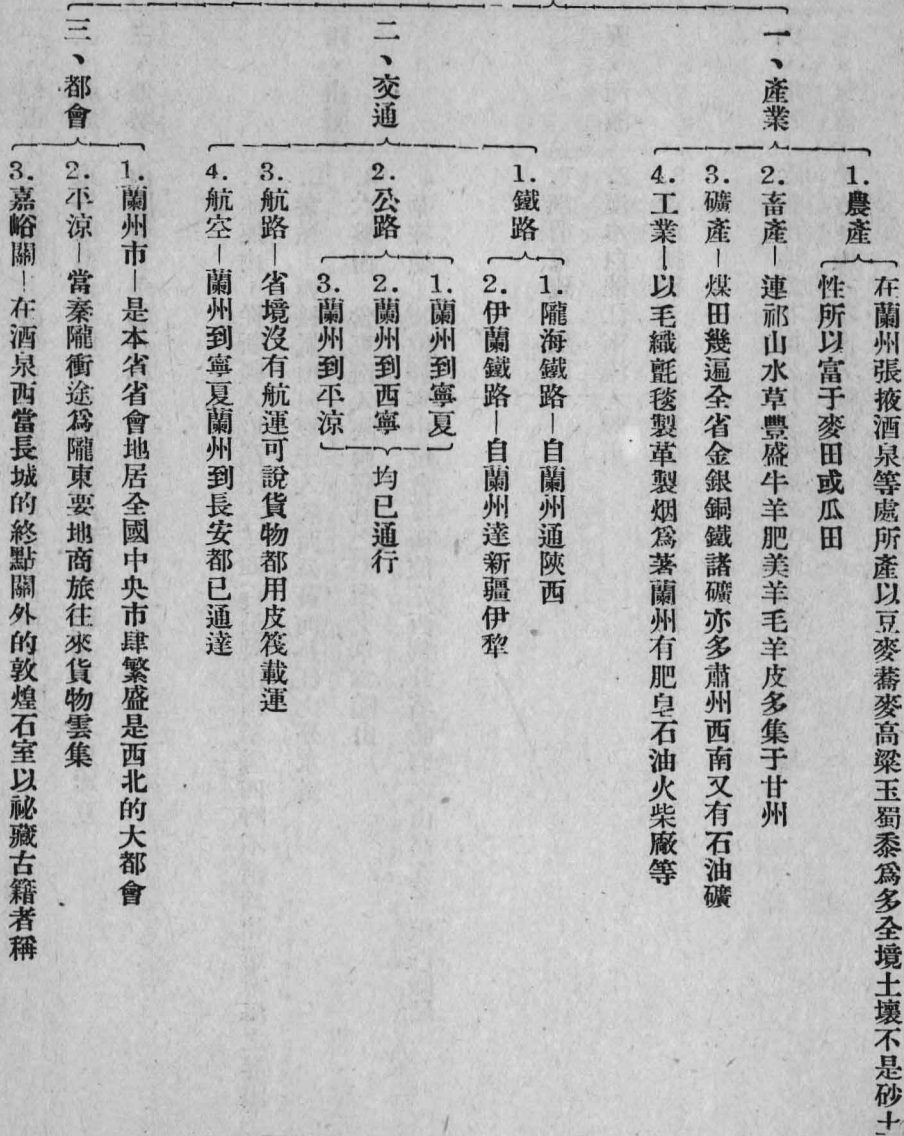 一、產業
1.農產
在蘭州張掖酒泉等處所產以豆麥蕎麥高粱玉蜀黍爲多全境土壤不是砂土
性所以富于麥田或瓜田
2.畜產—連祁山水草豐盛牛羊肥美羊毛羊皮多集于甘州
3.礦產—煤田幾遍全省金銀銅鐵諸礦亦多肅州西南又有石油礦
4.工業—以毛織氈毯製革製烟爲著蘭州有肥皂石油火柴廠等
二、交通
1.鐵路
1.隴海鐵路—自蘭州通陝西
2.伊蘭鐵路—自蘭州達新疆伊犂
2.公路
1.蘭州到寧夏
2.蘭州到西寧
3.蘭州到平涼
均已通行
3.航路—省境沒有航運可說貨物都用皮筏載運
4.航空—蘭州到寧夏蘭州到長安都已通達
三、都會
1.蘭州市—是本省省會地居全國中央市肆繁盛是西北的大都會
2.平涼—當秦隴衝途爲隴東要地商旅往來貨物雲集
3.嘉峪關—在酒泉西當長城的終點關外的敦煌石室以祕藏古籍者稱